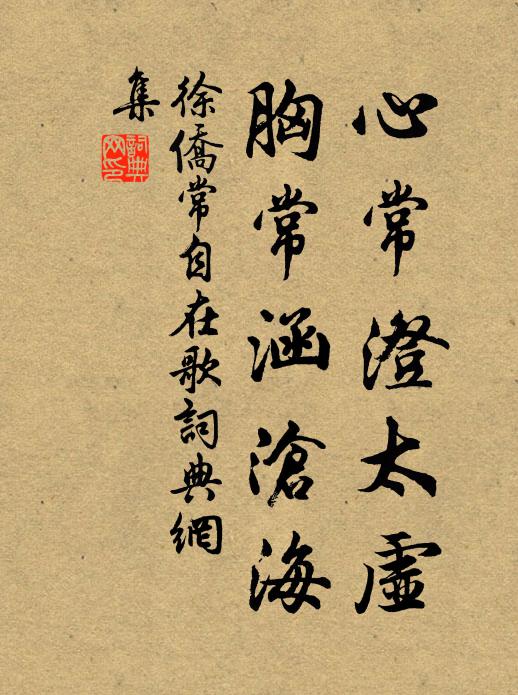 心常澄太虛
胸常涵滄海
徐僑常自在歌詞典網
集
詞典
网印